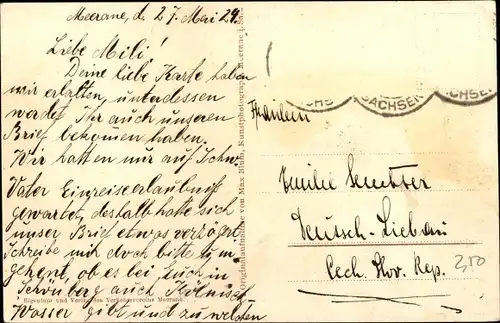 Meerane, d. 27. Mai 24.
Liebe Mili!
Deine liebe Karte haben
wir erhalten, unterdessen
werdet Ihr auch unseren
Brief bekommen haben.
Wir hatten nur auf
Vater Einreiseerlaubnis
gewartet, deshalb hatte sich
unser Brief etwas verzögert.
Schreibe mir doch bitte
ob es bei euch in
Schönberg auch Kölnisch
Wasser gibt und zu welchen
Eigentum und Verlag des Verkehrsvereins Meerane.
Originalaufnahme von Max Bluhm, Kunstphotograph, Meerane i. Sa.
SACHSEN
Fräulein
Emilie
Deutsch-Liebau
Čech. Slov. Rep.
2,50